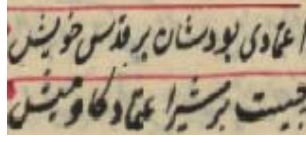 اعتمادی بودشان بر قدس خویش
چیست بر شیر اعتماد گاومیش